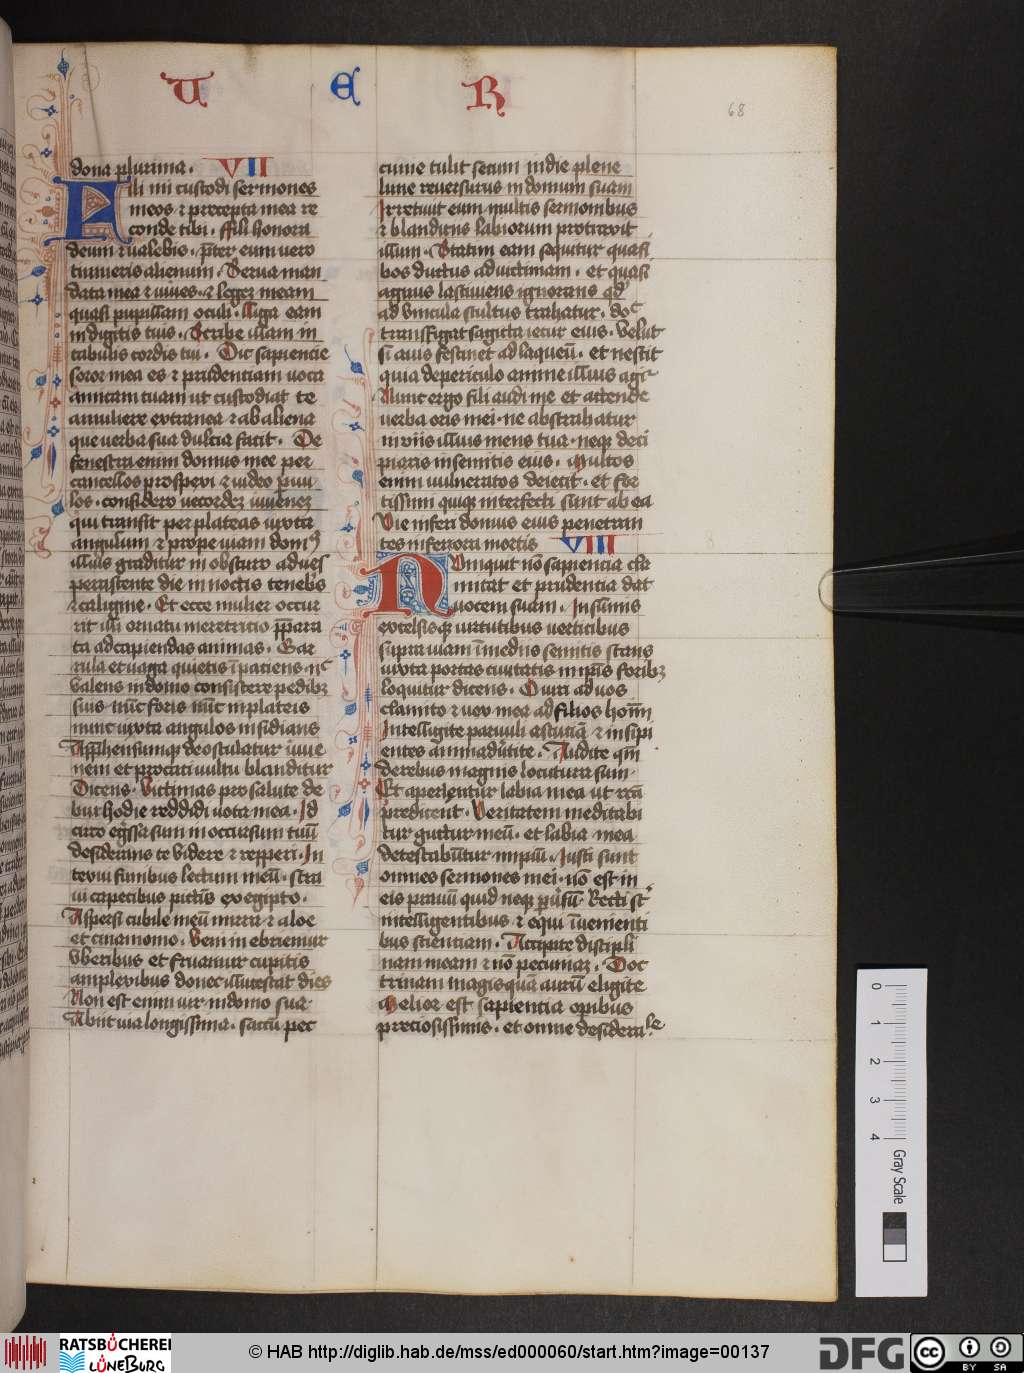 U E R
68
dona plurima . VII
Fili mi custodi sermones
meos ⁊ precepta mea re
conde tibi . ffili honora
deum ⁊ valebis . p̄ter eum uero
timueris alienum . Serua man
data mea ⁊ viues . ⁊ legez meam
quasi pupillam oculi . Liga eam
in digitis tuis . Scribe illam in
tabulis cordis tui . Dic sapiencie
soror mea es ⁊ prudenciam uoca
amicam tuam ut custodiat te
a muliere extranea ⁊ ab aliena
que uerba sua dulcia facit . De
fenestra enim domus mee per
cancellos prospexi ⁊ video pūu
los . considero uecordez iuuenez
qui transit per plateas iuxta
angulum ⁊ prope uiam domꝰ
illius graditur in obscuro aduesꝑ
perascente die in noctis tenebˀs
⁊ caligine . Et ecce mulier occur
rit illi ornatu meretricio p̄para
ta ad capiendas animas . Gar
rula et uaga quietis īpaciens . nͨ
valens in domo consistere pedibꝫ
suis nūc foris nūc in plateis
nunc iuxta angulos insidians
Apprehensumqꝫ deosculatur iuue
nem et procaci uultu blanditur
Dicens . Victimas pro salute de
bui hodie reddidi uota mea . Id
circo egssa sum in occursum tuū
desiderans te videre ⁊ repperi . In
texui funibus lectum meū . stra
ui tapetibus pictis ex egipto .
Aspersi cubile meū mirra ⁊ aloe
et cinamomo . Veni inebriemur
vberibus et fruamur cupitis
amplexibus donec illucescat dies
Non est enim uir in domo sua .
Abiit uia longissima . saccū pec
cunie tulit secum in die plene
lune reuersurus in domum suam
Irretiuit eum multis sermonibus
⁊ blandiciis labiorum protraxit
illum . Statim eam sequitur quasi
bos ductus ad uictimam . et quasi
agnus lasciuiens ignorans qd'
ad vincula stultus trahatur . doͨ
transfigat sagitta iecur eius . Velut
si auis festinet ad laqueū . et nescit
quia de periculo anime illius agiˀ
Nunc ergo fili audi me et attende
uerba oris mei . ne abstrahatur
in uiis illius mens tua . neqꝫ deci
piaris in semitis eius . Multos
enim vulneratos deiecit . et for
tissimi quiqꝫ interfecti sunt ab ea
Vie inferi domus eius penetran
tes inferiora mortis VIII
Nūnquit nō sapiencia cla
mitat et prudencia dat
uocem suam . In summis
excelsisqꝫ uirtutibus uerticibus
supra uiam ī mediis semitis stans
iuxta portas ciuitatis in ip̄is foribꝫ
loquitur dicens . O uiri ad uos
clamito ⁊ uox mea ad filios homī
Intelligite paruuli astuciā ⁊ insipi
entes animadūtite . Audite qm̄
de rebus magnis locutura sum .
Et aperientur labia mea ut recā
predicent . Veritatem meditabi
tur guttur meū . et labia mea
detestabūtur impiū . Justi sunt
omnes sermones mei . nō est in
eis prauū quid neqꝫ pˀusū . Recti sͭ
intelligentibus ⁊ equi īuenienti
bus scienciam . Accipite discipli
nam meam ⁊ nō pecuniaz . Doc
trinam magis quā aurū eligite
Melior est sapiencia opibus
preciosissimis . et omne desiderale
0 1 2 3 4
Gray Scale
RATSBÜCHEREI LÜNEBURG
© HAB http://diglib.hab.de/mss/ed000060/start.htm?image=00137
DFG
cc BY SA